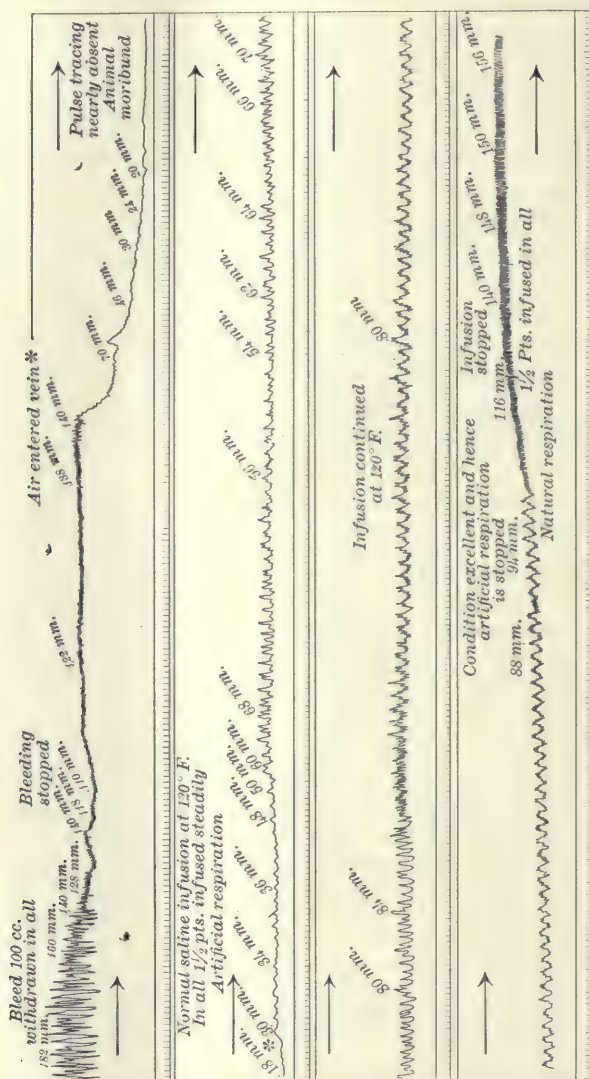 Bleed 100 cc.
withdrawn in all
182 mm.
160 mm.
140 mm.
128 mm.
140 mm.
118 mm.
110 mm.
Bleeding
stopped
122 mm.
138 mm.
Air entered vein*
140 mm.
70 mm.
46 mm.
30 mm
24 mm.
20 mm.
Pulse tracing
nearly absent
Animal
moribund
Normal saline infusion at 120° F.
In all 1½ pts. infused steadily
Artificial respiration
18 mm.
*
30 mm.
34 mm.
36 mm.
48 mm.
50 mm.
60 mm.
68 mm.
56 mm.
54 mm.
62 mm.
64 mm.
66 mm.
70 mm.
80 mm.
84 mm.
Infusion continued
at 120° F.
80 mm
Condition excellent and hence
artificial respiration
is stopped
88 mm.
94 mm.
Natural respiration
116 mm.
Infusion
stopped
1½ Pts. infused in all
140 mm.
148 mm.
150 mm.
156 mm.